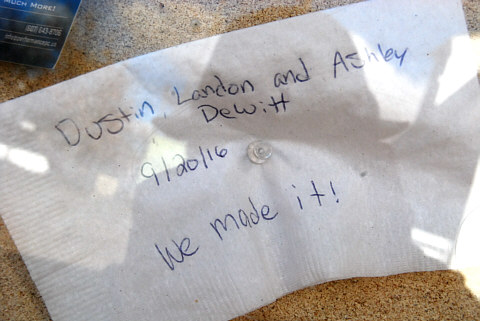 MUCH MORE!
Dustin, Landon and Ashley
Dewitt
9/20/16
We made it!